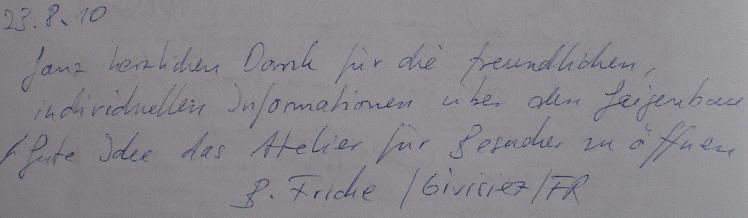 23.8.10
Ganz herzlichen Dank für die freundlichen,
individuellen Informationen über den Geigenbau
Gute Idee das Atelier für Besucher zu öffnen
B. Fricke / Givisiez / FR